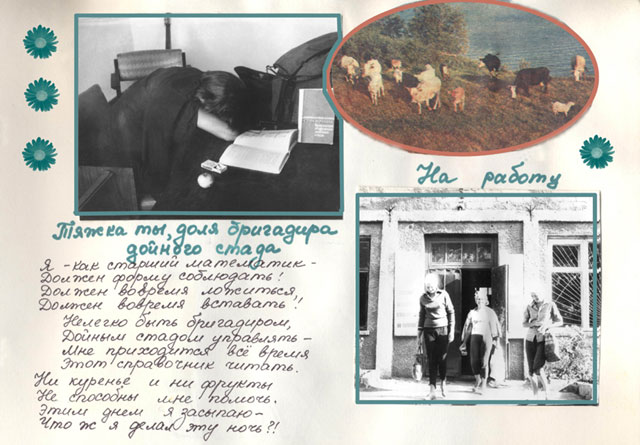 На работу
Тяжка ты, доля бригадира
дойного стада
Я - как старший математик -
Должен форму соблюдать!
Должен вовремя ложиться,
Должен вовремя вставать!!
Нелегко быть бригадиром,
Дойным стадом управлять -
Мне приходится всё время
Этот справочник читать.
Ни куренье и ни фрукты
Не способны мне помочь.
Этим днем я засыпаю -
Что ж я делал эту ночь?!